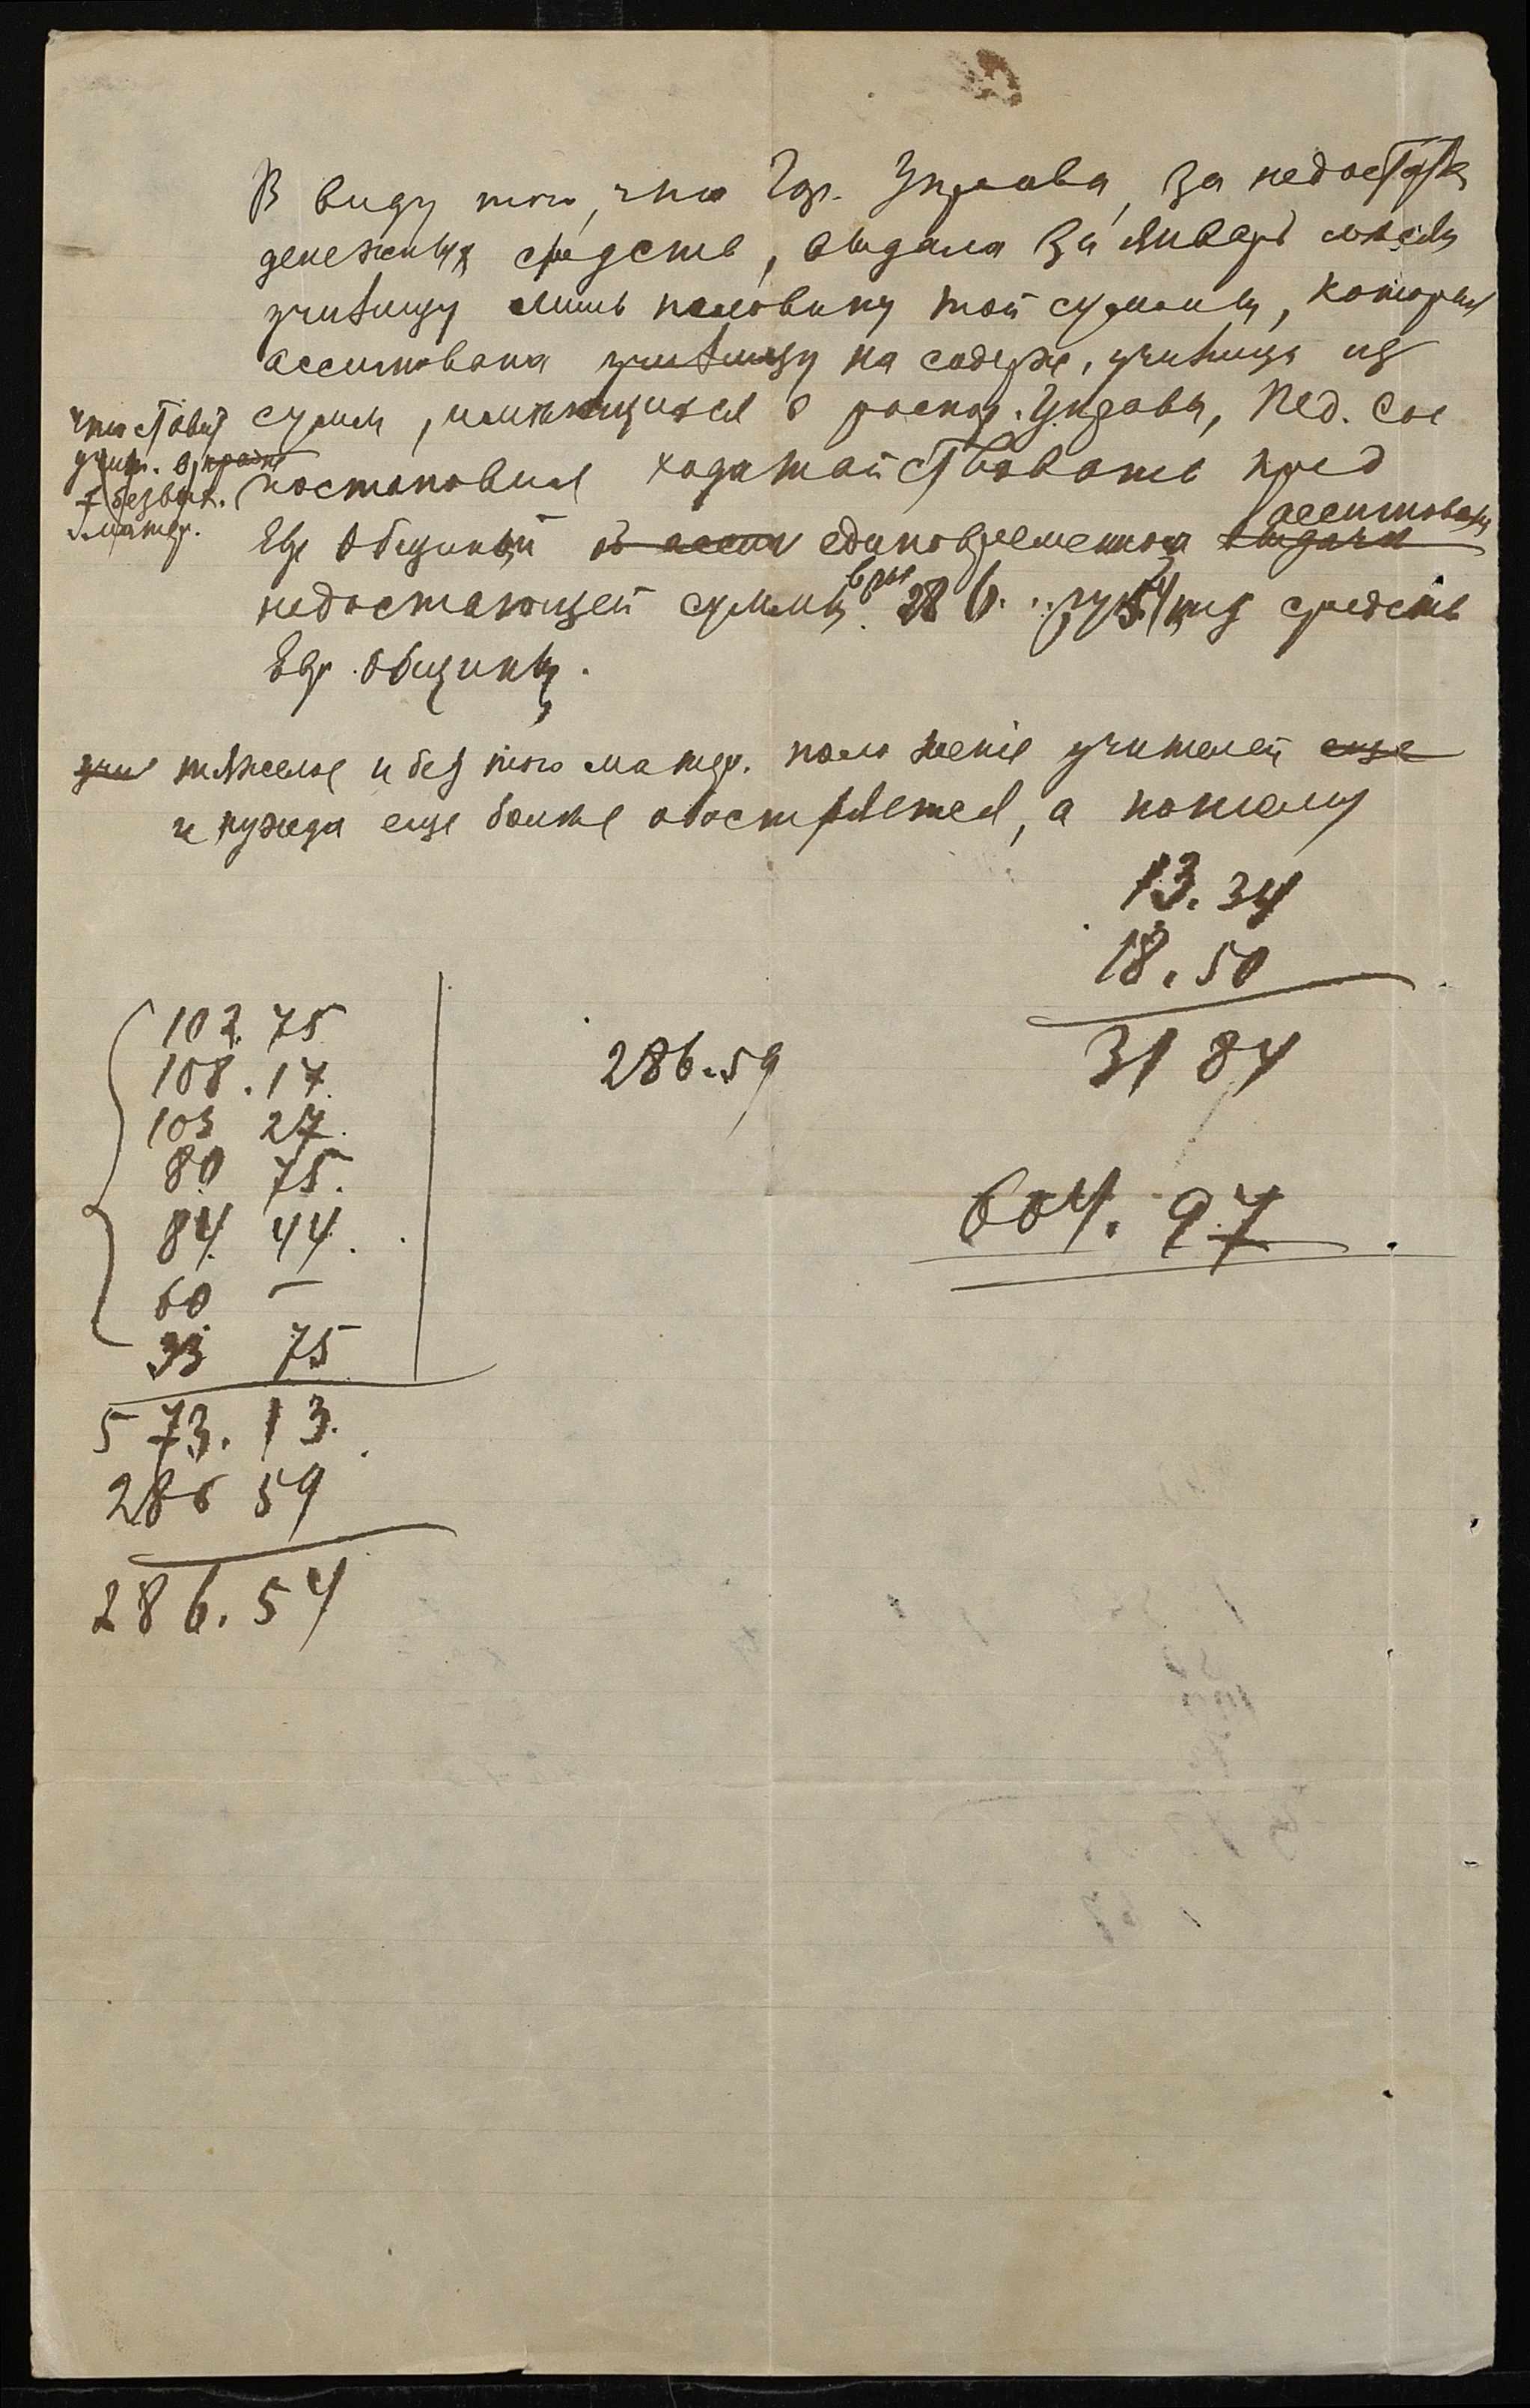 В виду того, что Гор. Управа, за недостатк
денежных средств, выдала за Январь месяц
училищу лишь половину той суммы, которая
ассигнована училищу на содерж. училища из
сумм, имеющихся в распор. Управы, Пед. Сов
что ставит
учит. в крайне
безвых.
матер.
постановил ходатайствовать пред
Евр Общиной об ассигн единовременной выдачи
ассигновании
недостающей суммы 286. р 54 из средств
Евр. общины.
учи тяжелое и без того матер. положение учителей еще
и нужда еще более обостряется, а потому
13. 34
18. 50
31 84
604. 97
102. 75
108. 17
103 27
80 75.
84 44.
60 –
33 75
573. 13.
286 59
286. 54
286.59